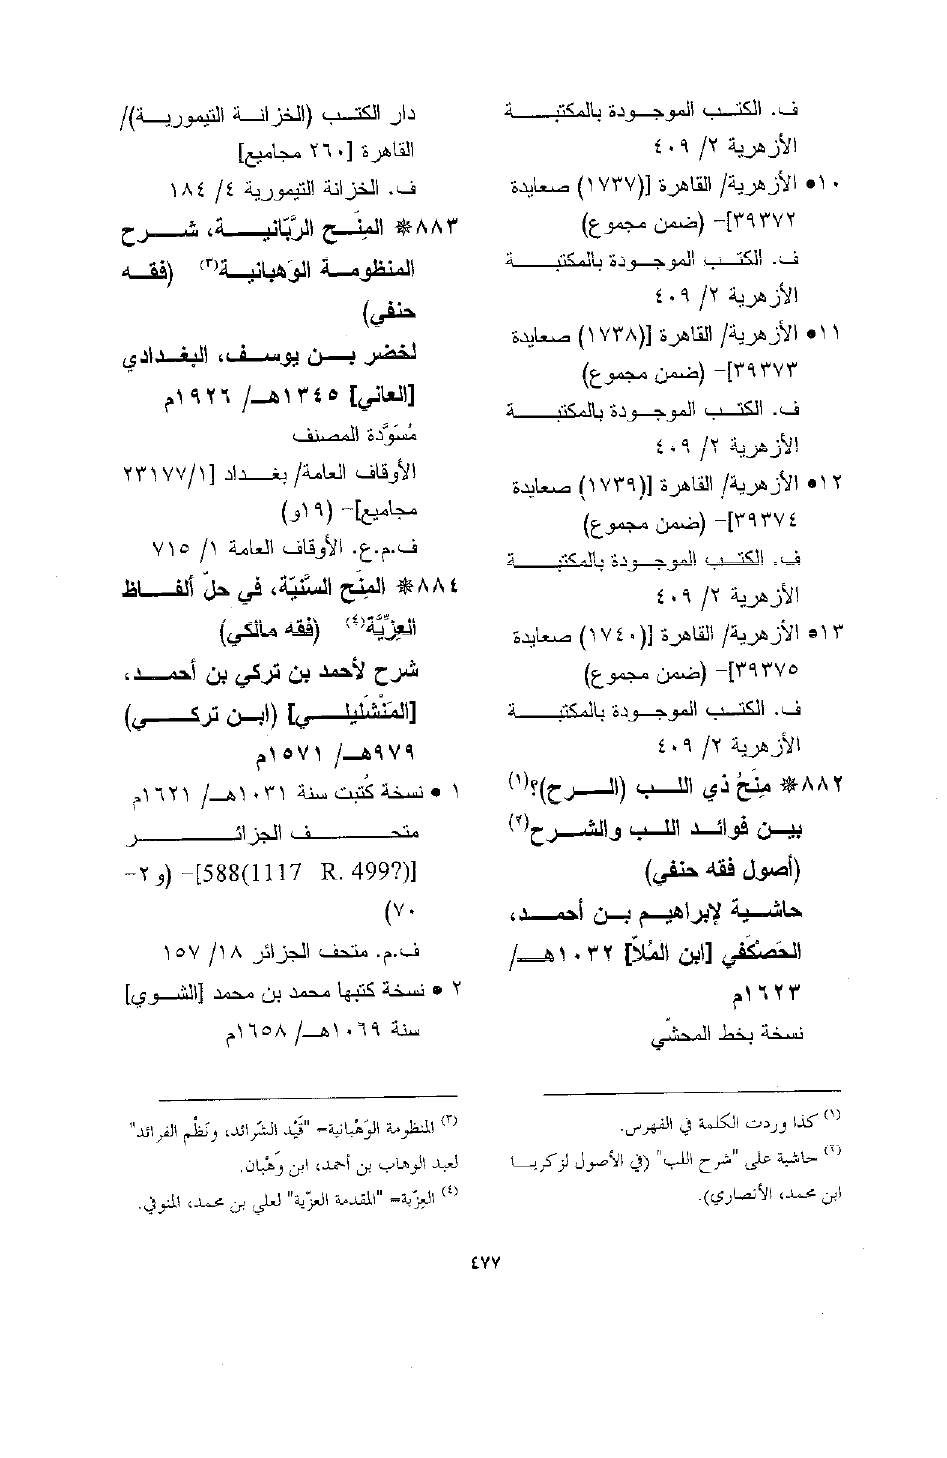 ف. الكتب الموجودة بالمكتبة
الأزهرية ٢/ ٤٠٩
١٠• الأزهرية/ القاهرة [(١٧٣٧) صعايدة
٣٩٣٧٢]- (ضمن مجموع)
ف. الكتب الموجودة بالمكتبة
الأزهرية ٢/ ٤٠٩
١١• الأزهرية/ القاهرة [(١٧٣٨) صعايدة
٣٩٣٧٣]- (ضمن مجموع)
ف. الكتب الموجودة بالمكتبة
الأزهرية ٢/ ٤٠٩
١٢• الأزهرية/ القاهرة [(١٧٣٩) صعايدة
٣٩٣٧٤]- (ضمن مجموع)
ف. الكتب الموجودة بالمكتبة
الأزهرية ٢/ ٤٠٩
١٣• الأزهرية/ القاهرة [(١٧٤٠) صعايدة
٣٩٣٧٥]- (ضمن مجموع)
ف. الكتب الموجودة بالمكتبة
الأزهرية ٢/ ٤٠٩
٨٨٢* مِنَحُ ذي اللب (الرح)؟(١)
بين فوائد اللب والشرح(٢)
(أصول فقه حنفي)
حاشية لإبراهيم بن أحمد،
الحَصْكَفي [ابن المُلاّ] ١٠٣٢هـ/
١٦٢٣م
نسخة بخط المحشّي
(١) كذا وردت الكلمة في الفهرس.
(٢) حاشية على "شرح اللب" (في الأصول لزكريا
ابن محمد، الأنصاري).
دار الكتب (الخزانة التيمورية)/
القاهرة [٢٦٠ مجاميع]
ف. الخزانة التيمورية ٤/ ١٨٤
٨٨٣* المِنَح الرَّبّانية، شرح
المنظومة الوَهبانية(٣) (فقه
حنفي)
لخضر بن يوسف، البغدادي
[العاني] ١٣٤٥هـ/ ١٩٢٦م
مُسَوَّدة المصنف
الأوقاف العامة/ بغداد [٢٣١٧٧/١
مجاميع]- (١٩و)
ف.م.ع. الأوقاف العامة ١/ ٧١٥
٨٨٤* المِنَح السنَّيّة، في حلّ ألفاظ
العِزِّيَّة(٤) (فقه مالكي)
شرح لأحمد بن تركي بن أحمد،
[المَنْشَليلي] (ابن تركي)
٩٧٩هـ/ ١٥٧١م
١ • نسخة كُتبت سنة ١٠٣١هـ/ ١٦٢١م
متحف الجزائر
[588(1117 R. 499?)]- (و ٢-
٧٠)
ف.م. متحف الجزائر ١٨/ ١٥٧
٢ • نسخة كتبها محمد بن محمد [الشوي]
سنة ١٠٦٩هـ/ ١٦٥٨م
(٣) المنظومة الوَهْبانية= "قَيْد الشَرائد، ونَظْم الفرائد"
لعبد الوهاب بن أحمد، ابن وَهْبان.
(٤) العِزّية= "المقدمة العزّية" لعلي بن محمد، المنوفي.
٤٧٧